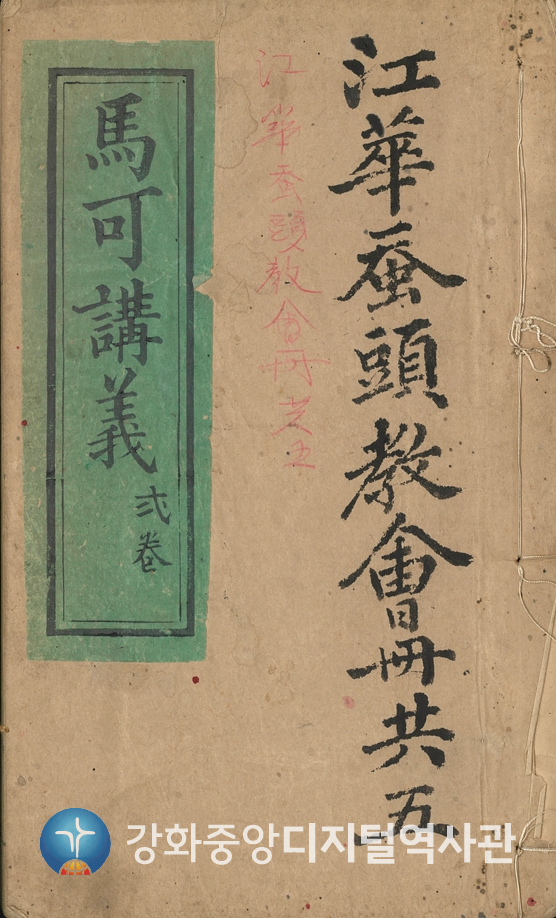 江華蚕頭教會冊共五
江華蚕頭教會冊共五
馬可講義
弍卷
강화중앙디지털역사관